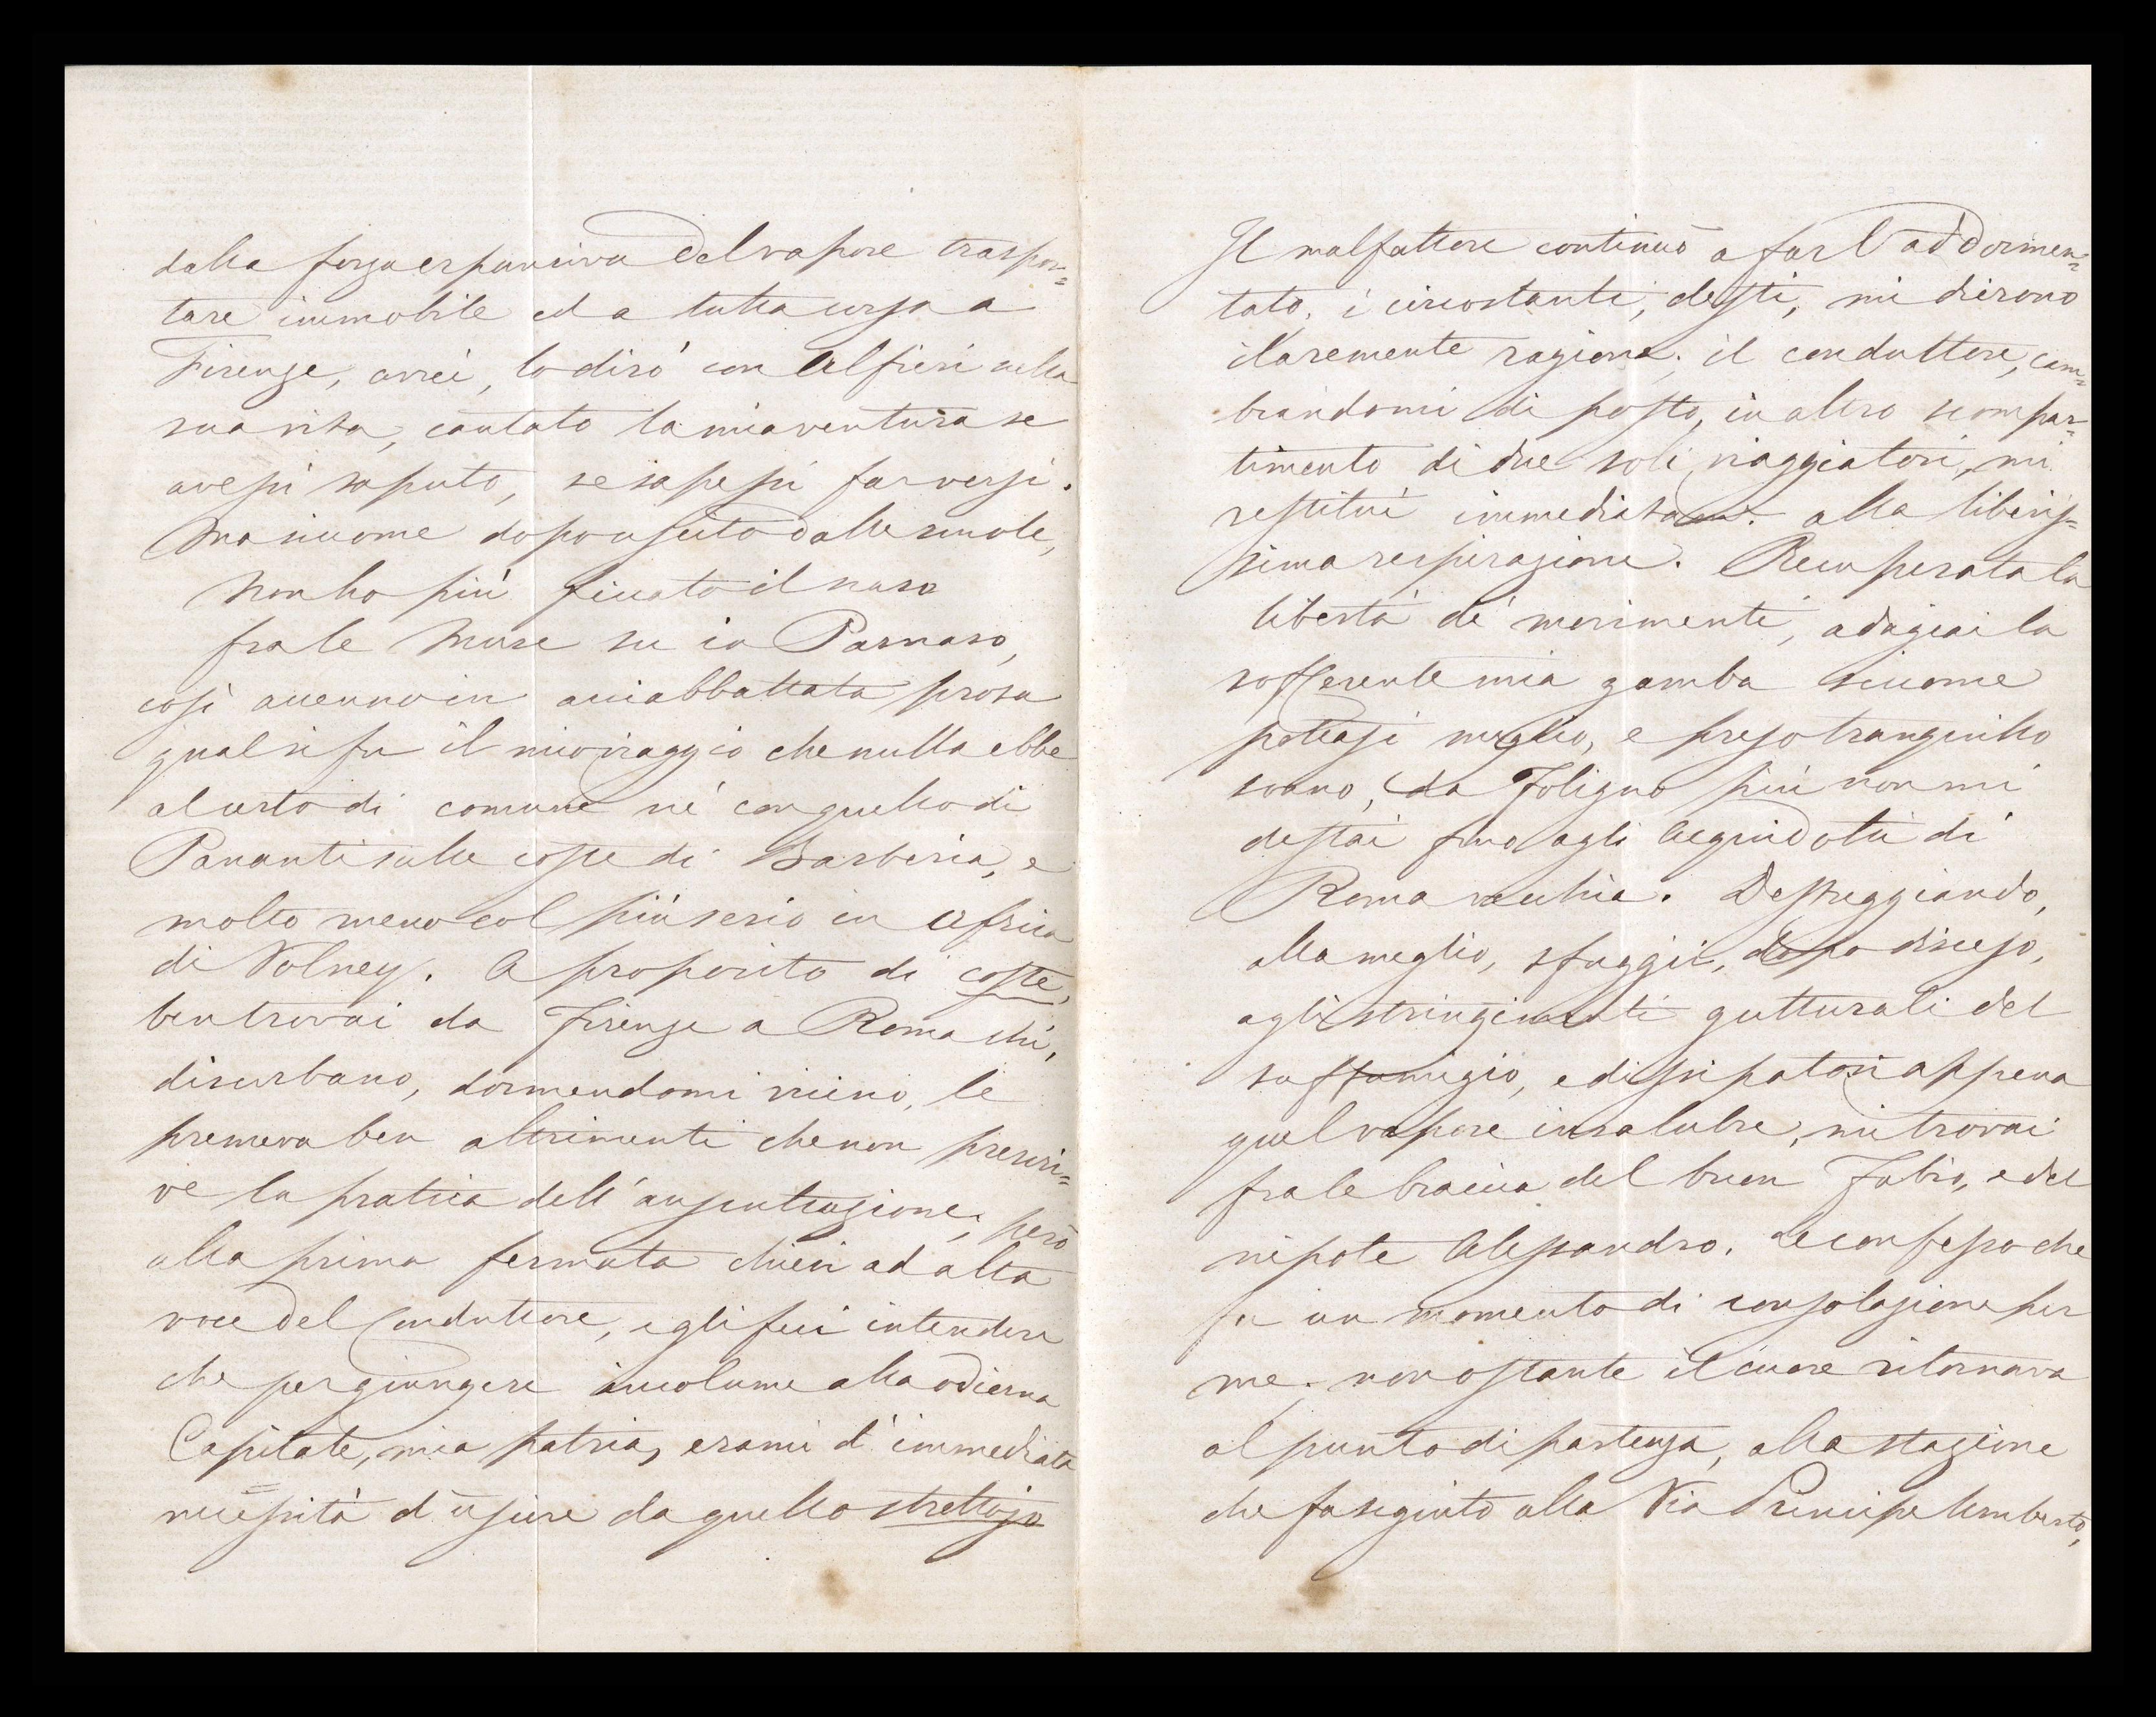 dalla forza espansiva del vapore traspor=
tare immobile ed a tutta corsa a
Firenze, avrei, lo dirò con Alfieri nella
sua vita, cantato la mia ventura se
avessi saputo, se sapessi far versi.
Ma siccome dopo uscito dalle scuole,
Non ho più ficcato il naso
fra le Muse su in Parnaso,
così accenno in acciabbattata prosa
qual si fu il mio viaggio che nulla ebbe
al certo di comune nè con quello di
Pananti sulle coste di Barberia, e
molto meno col più serio in Africa
di Volney. A proposito di coste,
ben trovai da Firenze a Roma chi,
disurbano, dormendomi vicino, le
premeva ben altrimenti che non prescri=
ve la pratica dell'auscultazione; però
alla prima fermata chiesi ad alta
voce del Conduttore, e gli feci intendere
che per giungere incolume alla odierna
Capitale, mia patria, erami d'immediata
necessità d'uscire da quello strettojo
Il malfattore continuò a far l'addormen=
tato, i circostanti, desti, mi dierono
ilaremente ragione; il conduttore, cam=
biandomi di posto, in altro scompar=
timento di due soli viaggiatori, mi
restituì immediatam. alla liberis=
sima respirazione. Recuperata la
libertà de' movimenti, adagiai la
sofferente mia gamba siccome
poteasi meglio, e preso tranquillo
sonno, da Foligno più non mi
destai fino agli Acquidotti di
Roma vecchia. Destreggiando,
alla meglio, sfuggii, dopo disceso,
agli stringimenti gutturali del
suffumigio, e dissipatosi appena
quel vapore insalubre, mi trovai
fra le braccia del buon Fabio, e del
nipote Alessandro. Le confesso che
fu un momento di consolazione per
me; nonostante il cuore ritornava
al punto di partenza, alla stazione
che fa seguito alla Via Principe Umberto,